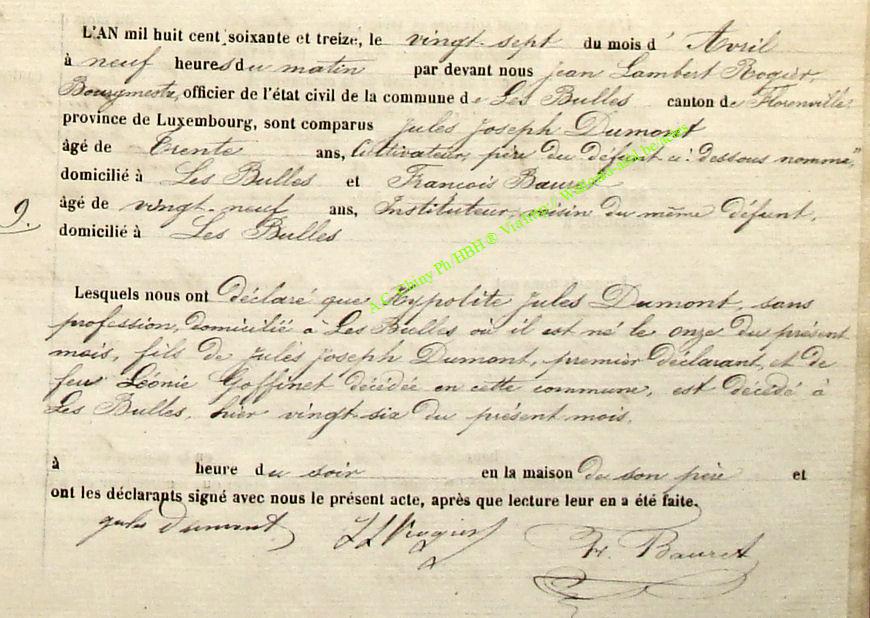 L'AN mil huit cent soixante et treize, le vingt-sept du mois d' Avril
à neuf heures du matin par devant nous Jean Lambert Rogier,
Bourgmestre, officier de l'état civil de la commune de Les Bulles canton de Florenville
province de Luxembourg, sont comparus Jules Joseph Dumont
âgé de Trente ans, Cultivateur, père du défunt ci-dessous nommé,
domicilié à Les Bulles et François Bauret
9. âgé de vingt-neuf ans, Instituteur, voisin du même défunt,
domicilié à Les Bulles
Lesquels nous ont déclaré que Hypolite Jules Dumont, sans
profession, domicilié à Les Bulles, où il est né le onze du présent
mois, fils de Jules Joseph Dumont, premier déclarant, et de
feu Léonie Goffinet décédée en cette commune, est décédé à
Les Bulles, hier vingt-six du présent mois,
à heure du soir en la maison de son père et
ont les déclarants signé avec nous le présent acte, après que lecture leur en a été faite.
Jules Dumont JL Rogier Fr. Bauret